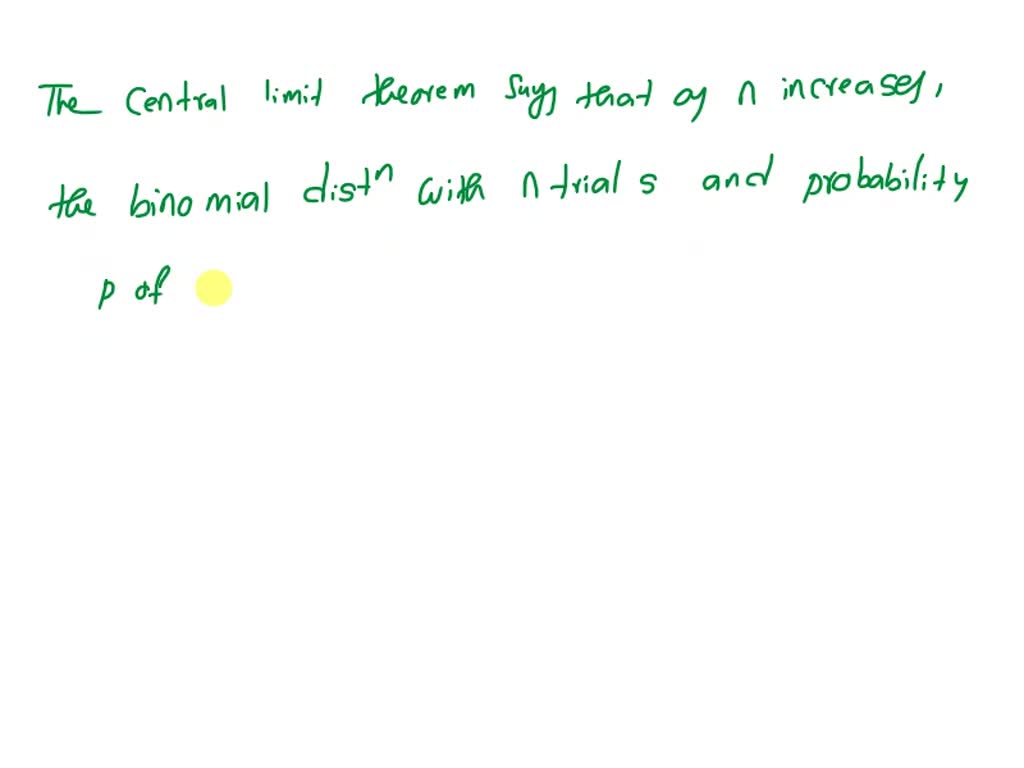 The central limit theorem says that as n increases,
the binomial distⁿ with n trials and probability
p of